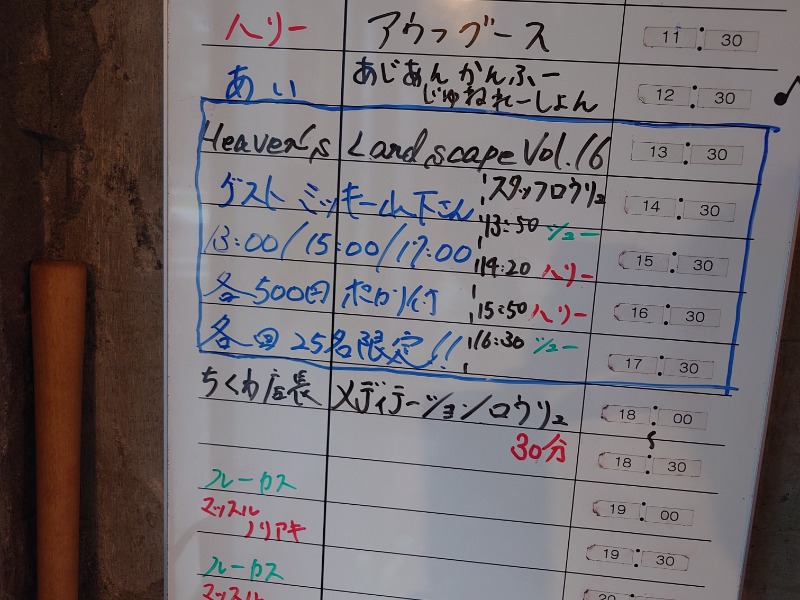 ハリー アウフグース 11:30
あい あじあんかんふー
じゅねれーしょん 12:30
Heaven's Landscape Vol.16 13:30
ゲスト ミッキー山下さん スタッフロウリュ 14:30
13:00/15:00/17:00 13:50 ジュー 15:30
14:20 ハリー
各500円 ポカリ付 15:50 ハリー 16:30
各回25名限定!! 16:30 ジュー 17:30
ちくわ店長 メディテーションロウリュ 18:00
30分 〜 18:30
フルーカス 19:00
マッスル
ノリアキ 19:30
フルーカス
マッスル 20:30